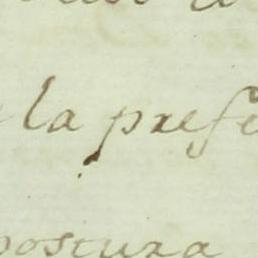 la prefe
postura